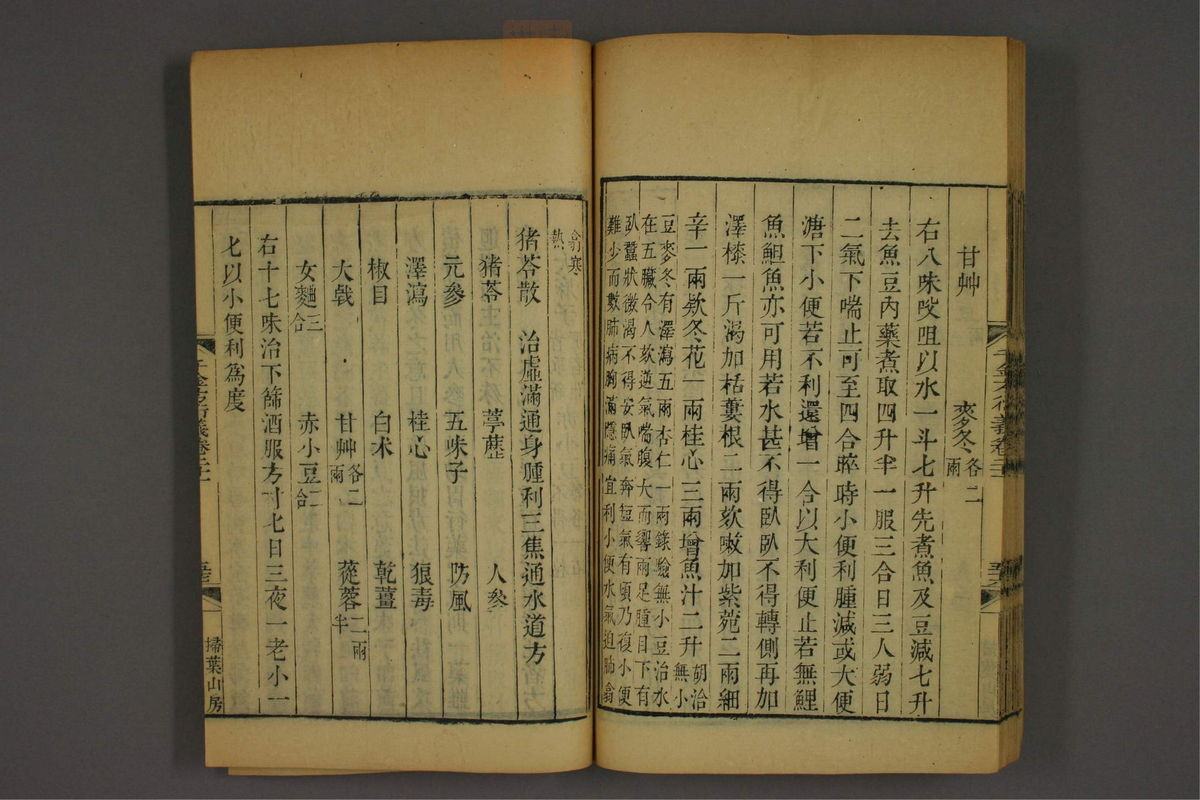 甘艸 麥冬各二兩
右八味㕮咀以水一斗七升先煮魚及豆減七升
去魚豆內藥煮取四升半一服三合日三人弱日
二氣下喘止可至四合晬時小便利腫減或大便
溏下小便若不利還增一合以大利便止若無鯉
魚鮰魚亦可用若水甚不得臥臥不得轉側再加
澤㯃一斤渴加栝蔞根二兩欬嗽加紫菀二兩細
辛一兩欵冬花一兩桂心三兩增魚汁二升 胡洽無小
豆麥冬有澤瀉五兩杏仁一兩錄驗無小豆治水
在五臟令人欬逆氣喘腹大而響兩足腫目下有
臥蠶狀微渴不得安臥氣奔短氣有頃乃復小便
難少而數肺病胸滿隱痛宜利小便水氣迫肺翕
翕寒
熱
豬苓散 治虛滿通身腫利三焦通水道方
豬苓 葶藶 人參
元參 五味子 防風
澤瀉 桂心 狼毒
椒目 白朮 乾薑
大戟 甘艸各二兩 蓯蓉二兩半
女麴三合 赤小豆二合
右十七味治下篩酒服方寸匕日三夜一老小一
匕以小便利為度
掃葉山房